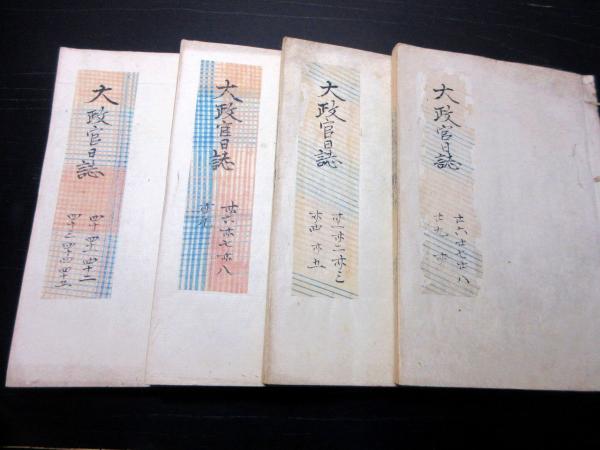 大政官日誌
四十 四十一 四十二
四十三 四十四 四十五
大政官日誌
卅六 卅七 卅八
卅九
大政官日誌
卅一 卅二 卅三
卅四 卅五
大政官日誌
廿六 廿七 廿八
廿九 卅